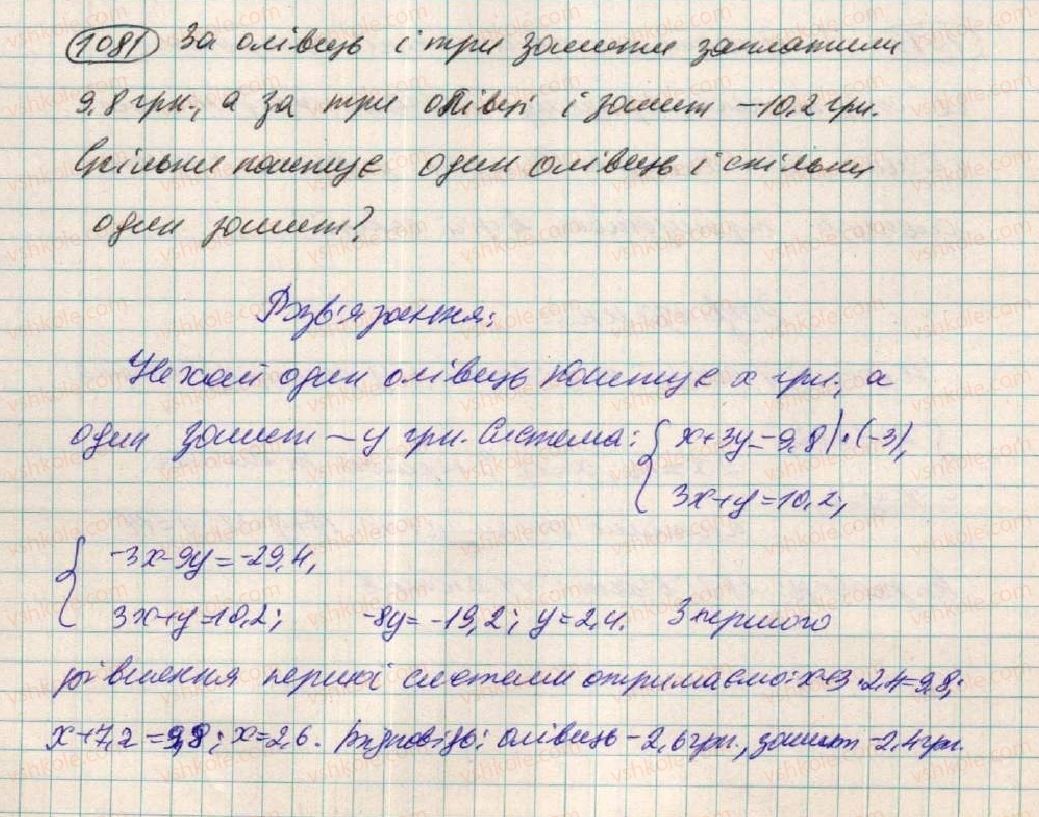 1081 За олівець і три зошити заплатили
9,8 грн., а за три олівці і зошит – 10,2 грн.
Скільки коштує один олівець і скільки
один зошит?
Розв'язання:
Нехай один олівець коштує x грн., а
один зошит – y грн. Система: { x+3y=9,8 | · (-3),
3x+y=10,2;
{ -3x-9y=-29,4,
3x+y=10,2; -8y=-19,2; y=2,4. З першого
рівняння першої системи отримаємо: x+3·2,4=9,8;
x+7,2=9,8; x=2,6. Відповідь: олівець – 2,6 грн., зошит – 2,4 грн.